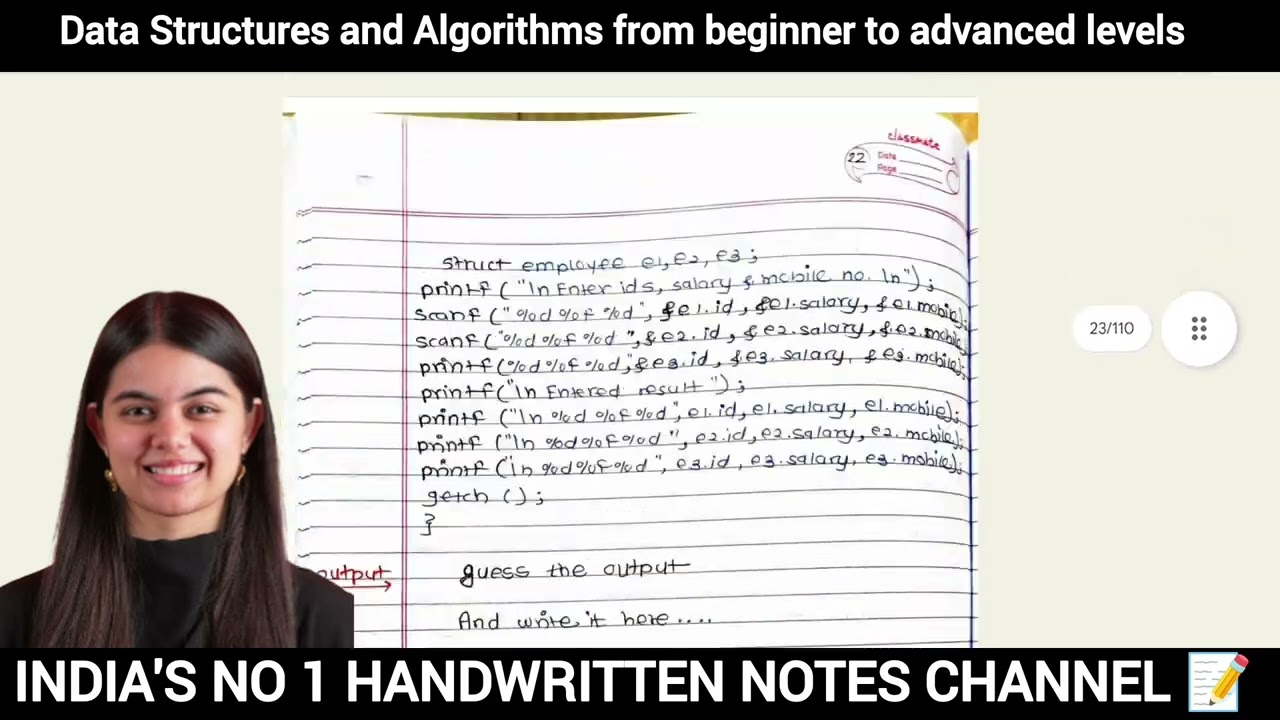 Data Structures and Algorithms from beginner to advanced levels
classmate
22
Date
Page
struct employee e1, e2, e3;
printf ("\n Enter ids, salary & mobile no. \n");
scanf ("%d %f %d", &e1.id, &e1.salary, &e1.mobile);
scanf ("%d %f %d ", &e2.id, &e2.salary, &e2.mobile
printf (%d %f %d", &e3.id, &e3.salary, &e3.mobile);
printf("\n Entered result ");
printf ("\n %d %f %d", e1.id, e1.salary, e1.mobile);
printf ("\n %d %f %d ", e2.id, e2.salary, e2.mobile);
printf ("\n %d %f %d ", e3.id, e3.salary, e3.mobile);
getch ();
}
output
guess the output
And write it here....
23/110
INDIA'S NO 1 HANDWRITTEN NOTES CHANNEL